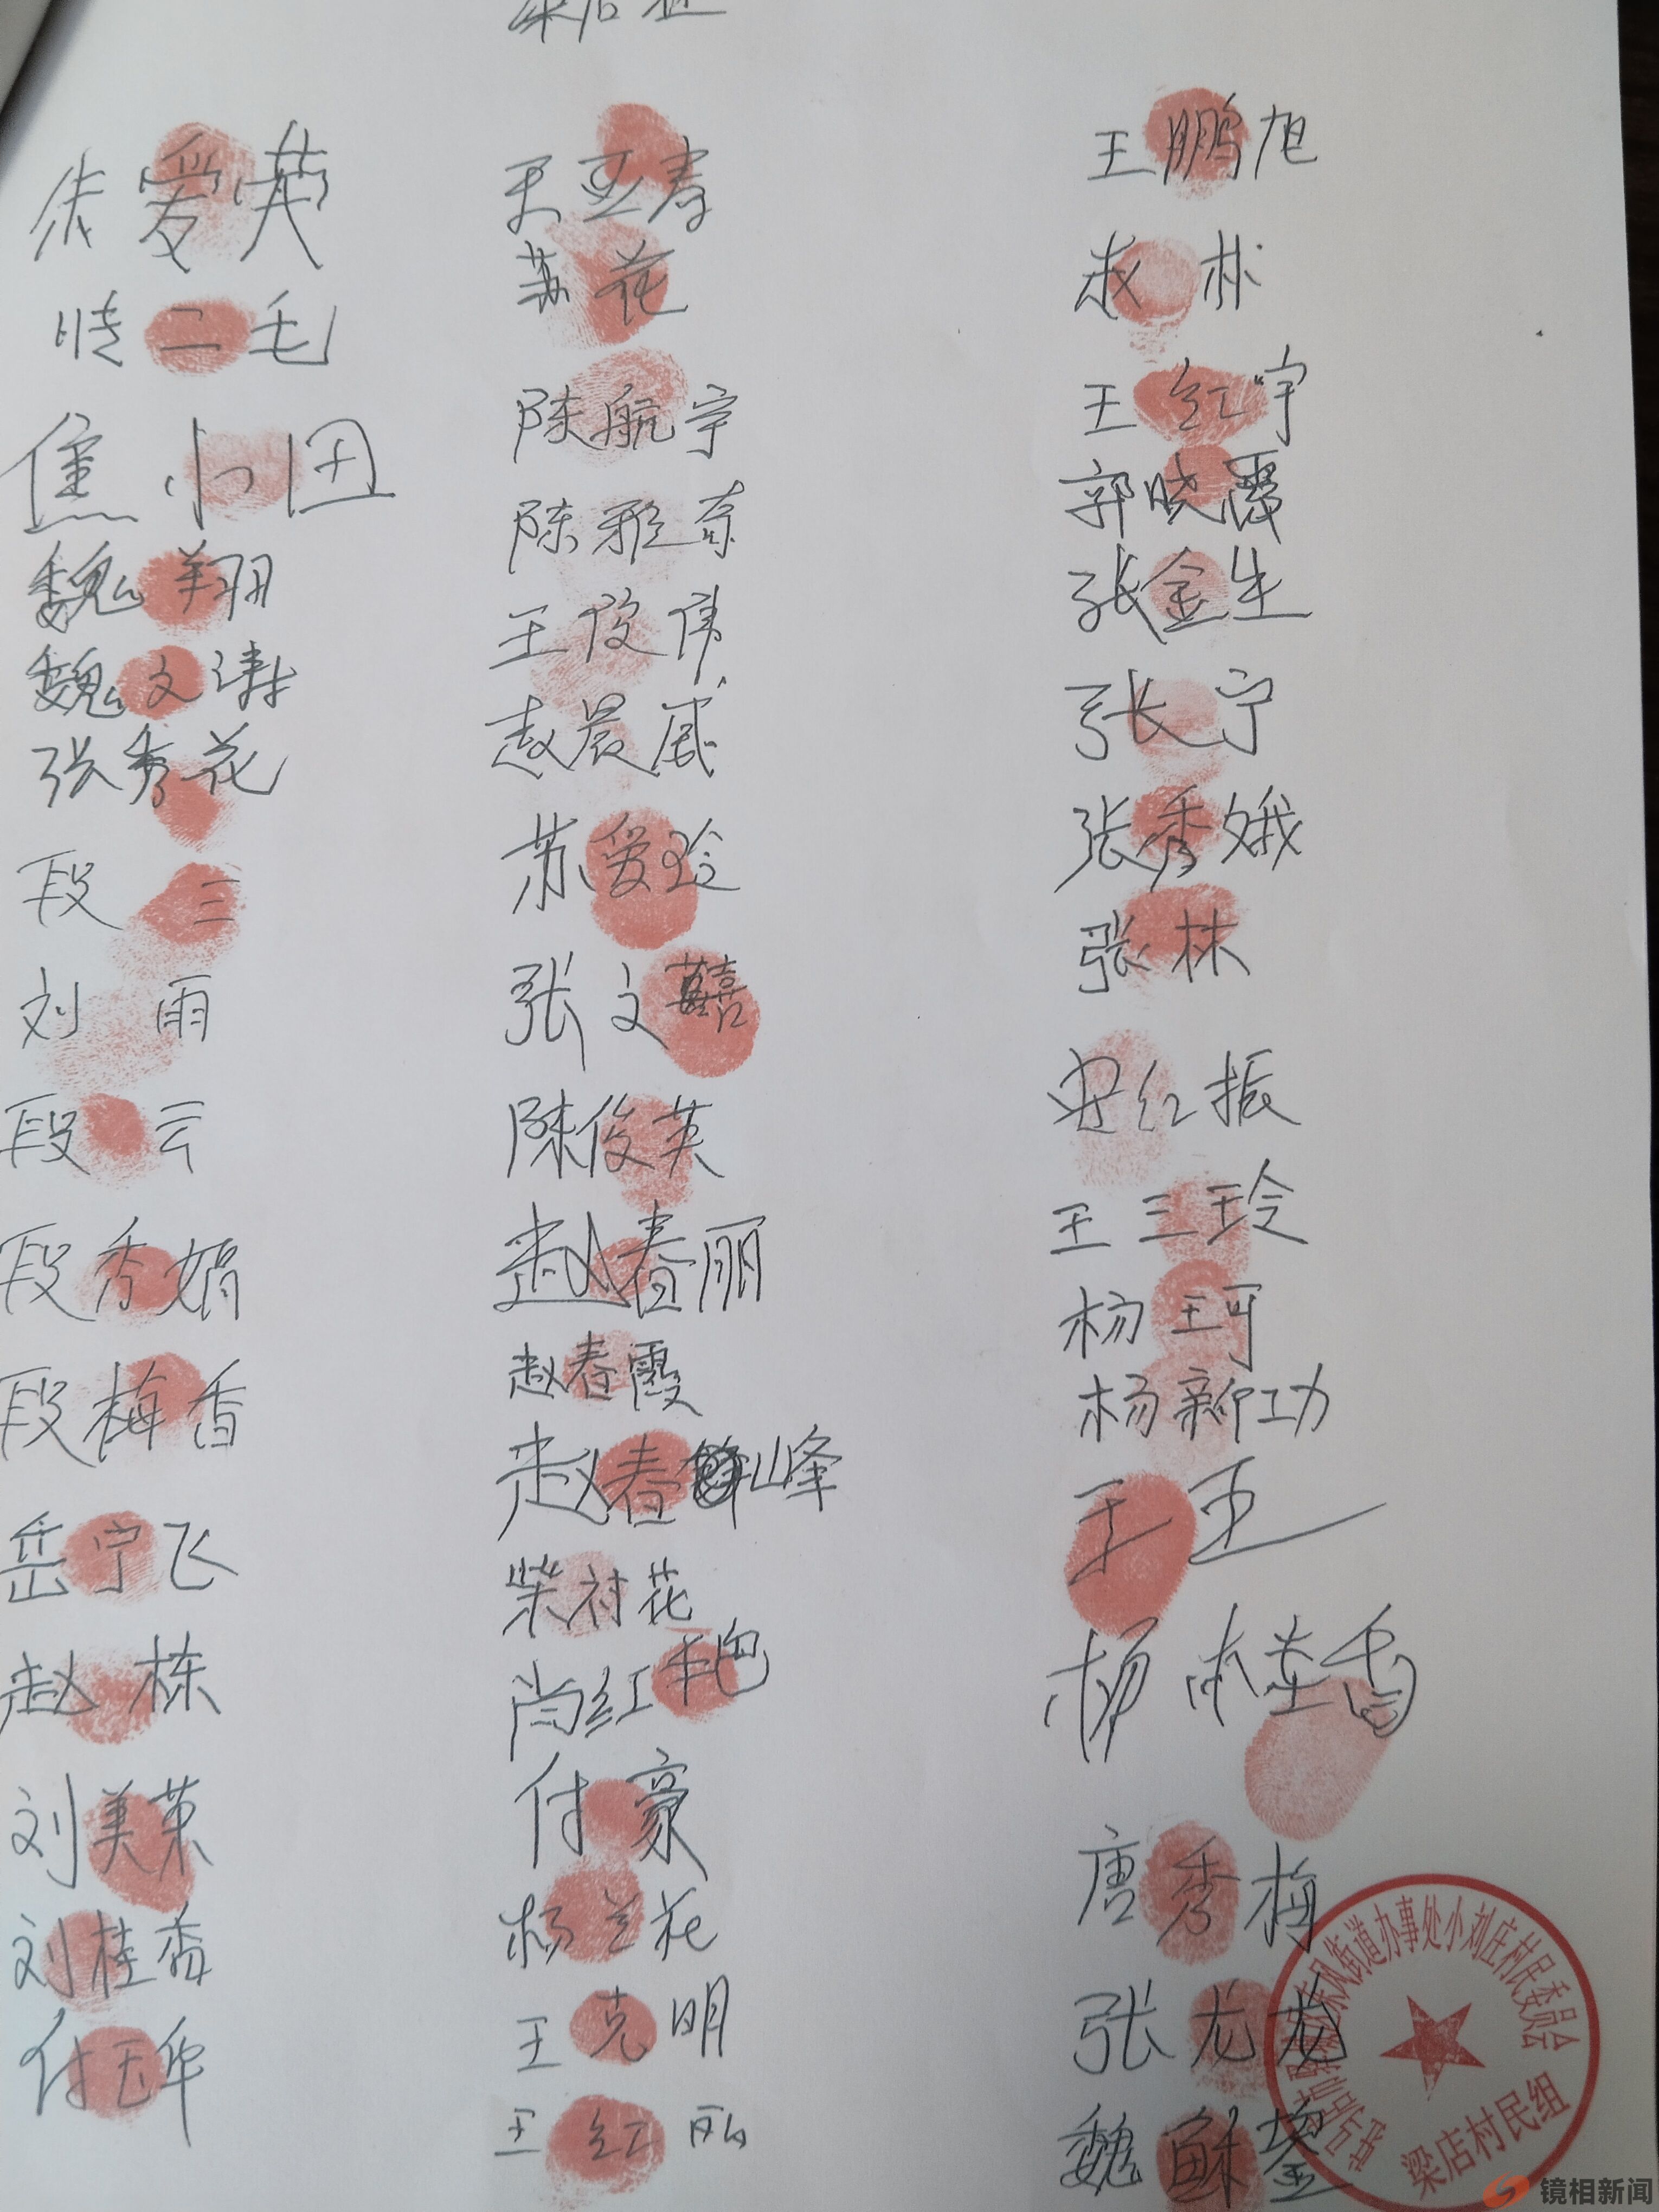 朱爱英
二毛
焦小田
魏翔
魏文涛
张秀花
段三
刘雨
段云
段秀娟
段梅香
岳宁飞
赵栋
刘美荣
刘桂香
付玉华
王亚春
苏花
陈航宇
陈雅奇
王俊伟
赵晨威
苏爱玲
张文
陈俊英
赵春丽
赵春霞
赵春峰
柴村花
尚红艳
付豪
杨兰花
王克明
王红丽
王鹏旭
赵林
王红宇
郭晓霞
张金生
张宁
张秀娥
张林
史红振
王三玲
杨珂
杨新功
王玉
杨桂香
唐秀梅
张龙龙
魏
东风街道办事处小刘庄村民委员会
梁店村民组
镜相新闻